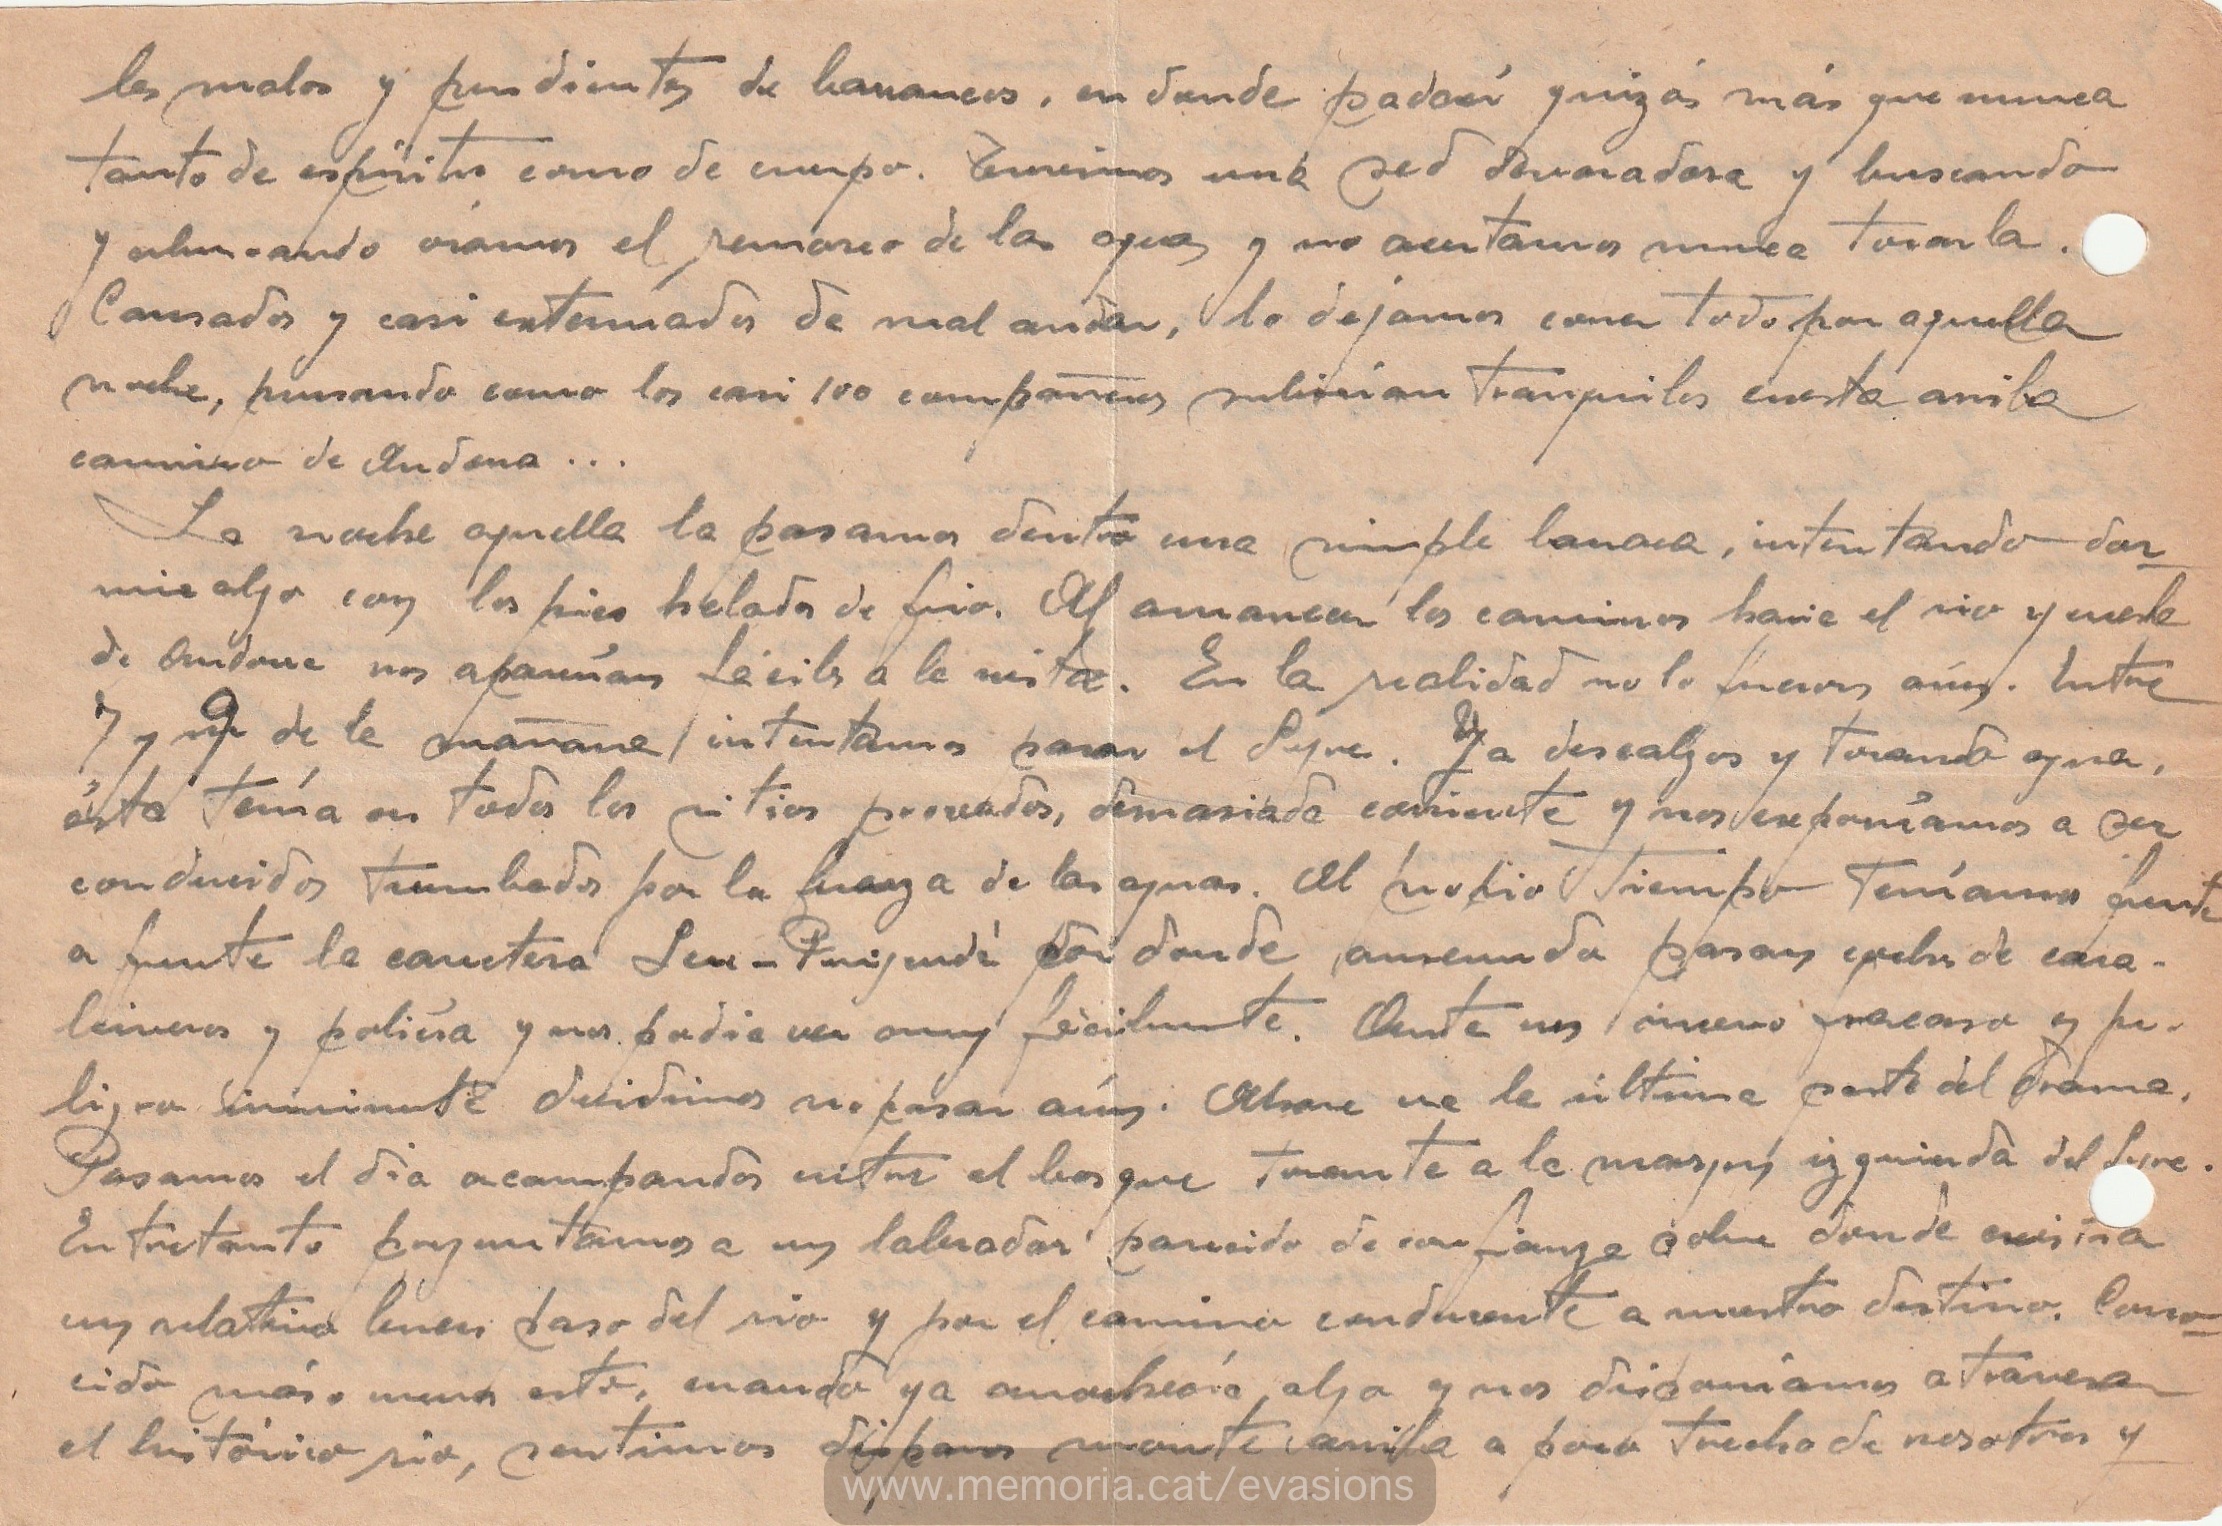 les malos y pendientes de barrancos, en donde padecí quizás más que nunca
tanto de espíritu como de cuerpo. Tuvimos una sed devoradora y buscando
y buscando oíamos el remoreo de las aguas y no acertamos nunca tocarla.
Cansados y casi extenuados de mal andar, lo dejamos correr todo por aquella
noche, pensando como los casi 100 compañeros subirían tranquilos cuesta arriba
camino de Andorra ...
La noche aquella la pasamos dentro una simple barraca, intentando dor-
mir algo con los pies helados de frio. Al amanecer los caminos hacia el rio y cuesta
de Andorra nos aparecían fáciles a la vista. En la realidad no lo fueron aún. Entre
7 y 9 de la mañana intentamos pasar el Segre. Ya descalzos y tocando agua,
ésta tenía en todos los sitios provados, demasiada corriente y nos exponíamos a ser
conducidos tumbados por la fuerza de las aguas. Al propio tiempo teníamos frente
a frente la carretera Seu-Puigcerdá por donde amenudo pasan coches de cara-
bineros y policía y nos podia ver muy fácilmente. Ante un nuevo fracaso y pe-
ligro inminente decidimos no pasar aún. Ahora va la última parte del drama.
Pasamos el día acampandos entre el bosque tocante a la margen izquierda del Segre.
Entretanto preguntamos a un labrador parecido de confianza sobre donde existía
un relativo buen paso del rio y por el camino conducente a nuestro destino. Cono-
cido más o menos esto, cuando ya anochecía algo y nos disponíamos atravesar
el histórico rio, sentimos disparos monte arriba a poco trecho de nosotros y
www.memoria.cat/evasions